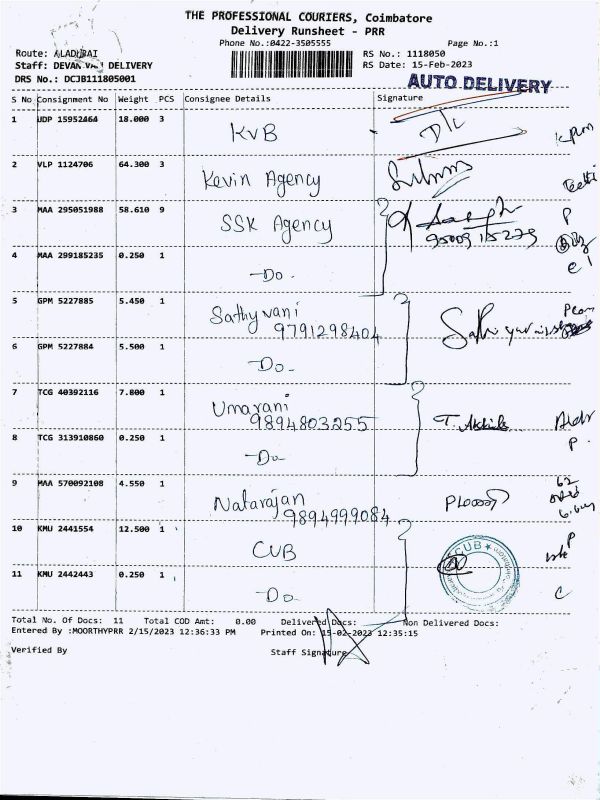 THE PROFESSIONAL COURIERS, Coimbatore
Delivery Runsheet - PRR
Phone No.:0422-3505555 Page No.:1
Route: ALADIBAI RS No.: 1118050
Staff: DEVAN VAN DELIVERY RS Date: 15-Feb-2023
DRS No.: DCJB111805001
AUTO DELIVERY
S No Consignment No Weight PCS Consignee Details Signature
1 UDP 15952464 18.000 3 KVB D/C
2 VLP 1124706 64.300 3 Kevin Agency
3 MAA 295051988 58.610 9 SSK Agency
P
4 MAA 299185235 0.250 1 -Do-
5 GPM 5227885 5.450 1 Sathyvani
9791298404
6 GPM 5227884 5.500 1 -Do-
7 TCG 40392116 7.800 1 Umarani
9894803255
8 TCG 313910860 0.250 1 -Do-
P.
9 MAA 570092108 4.550 1 Natarajan
9894999084
62
10 KMU 2441554 12.500 1 CUB
CUB
P
11 KMU 2442443 0.250 1 Do
C
Total No. Of Docs: 11 Total COD Amt: 0.00 Delivered Docs: Non Delivered Docs:
Entered By :MOORTHYPRR 2/15/2023 12:36:33 PM Printed On: 15-02-2023 12:35:15
Verified By Staff Signature